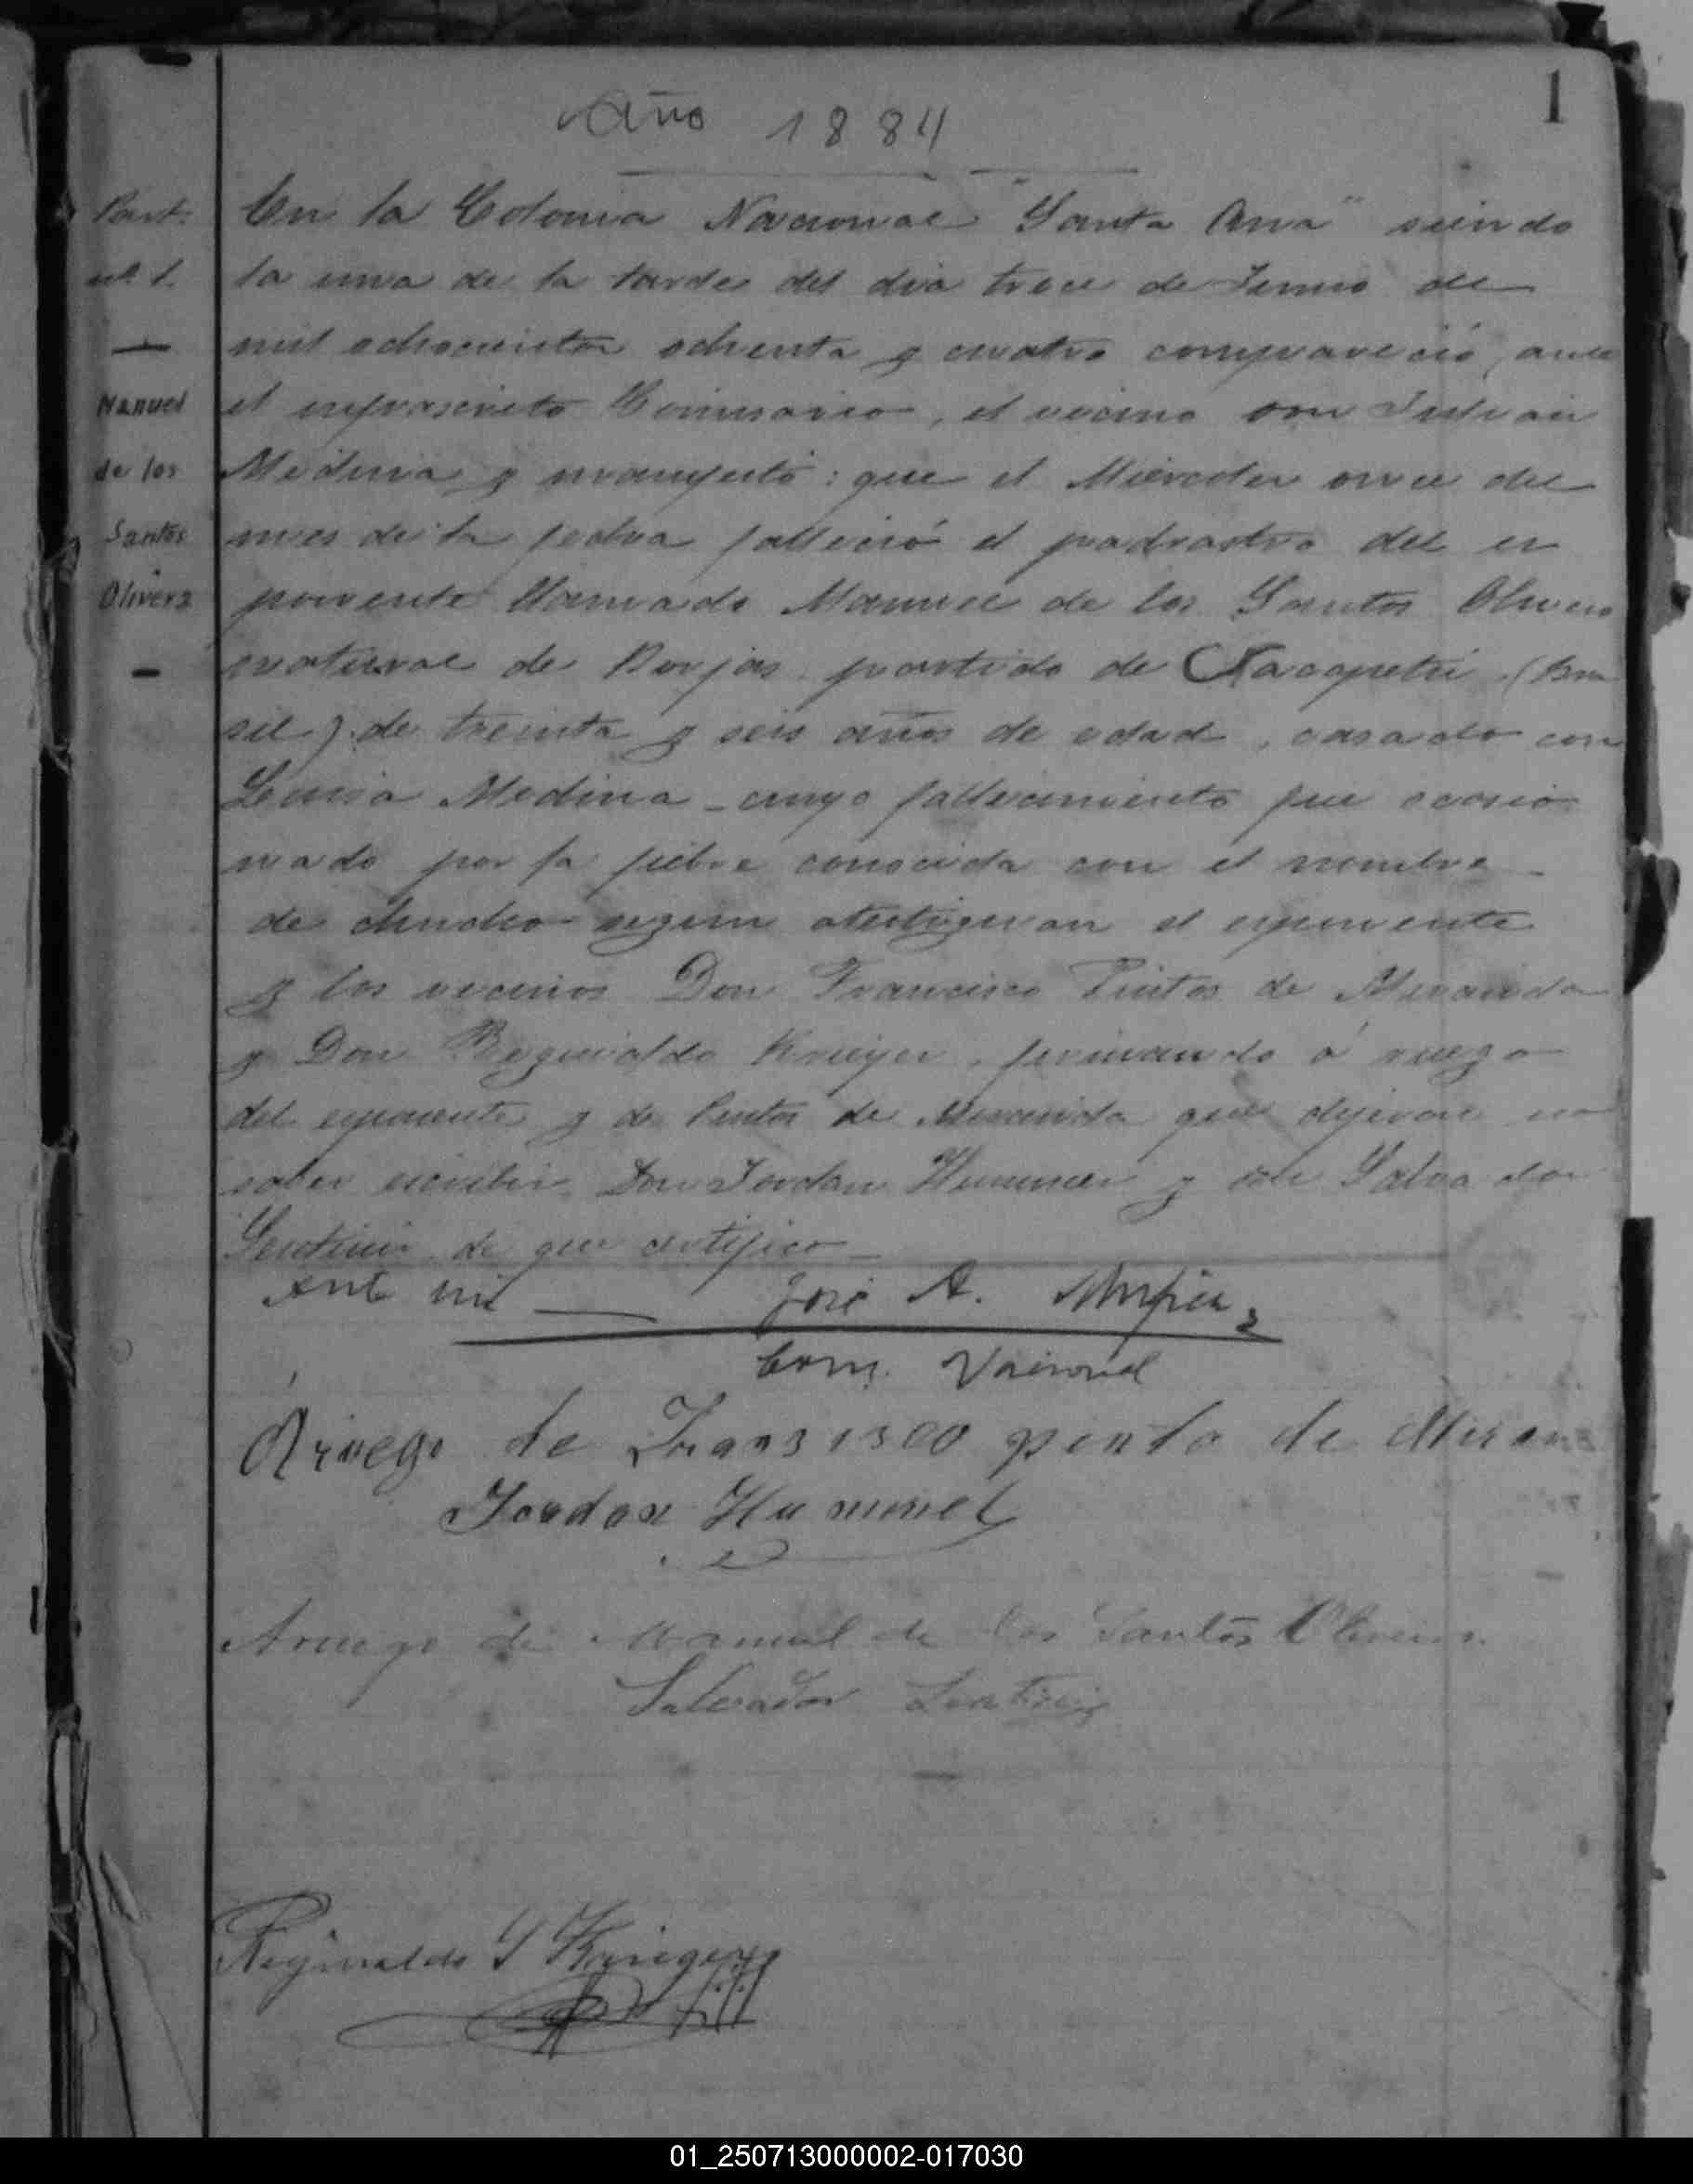 1
Año 1884
Part.
nº 1.
Manuel
de los
Santos
Olivera
En la Colonia Nacional "Santa Ana" siendo
la una de la tarde del dia trece de Junio de
mil ochocientos ochenta y cuatro compareció, ante
el infrascrito Comisario, el vecino don Julian
Medina y manifestó: que el Miércoles once del
mes de la fecha falleció el padrastro del es
ponente llamado Manuel de los Santos Olivera
natural de Borjas partido de (Bra
sil) de treinta y seis años de edad, casado con
Medina - cuyo fallecimiento fue ocasio
nado por la fiebre conocida con el nombre
de chucho segun atestiguan el esponente
y los vecinos Don Francisco Pintos de Miranda
y Don Reguinaldo Krieger, firmando á ruego
del esponente y de Pintos de Miranda que dijeron no
saber escribir, Don Jordan Hummer y don Salvador
de que certifico
Ante mi José A.
Com. Nacional
Aruego de Fransisco pinto de Miran
Jordan Hummel
Aruego de Manuel de los Santos Olivera
Salvador
Reginaldo Krieger
01_250713000002-017030